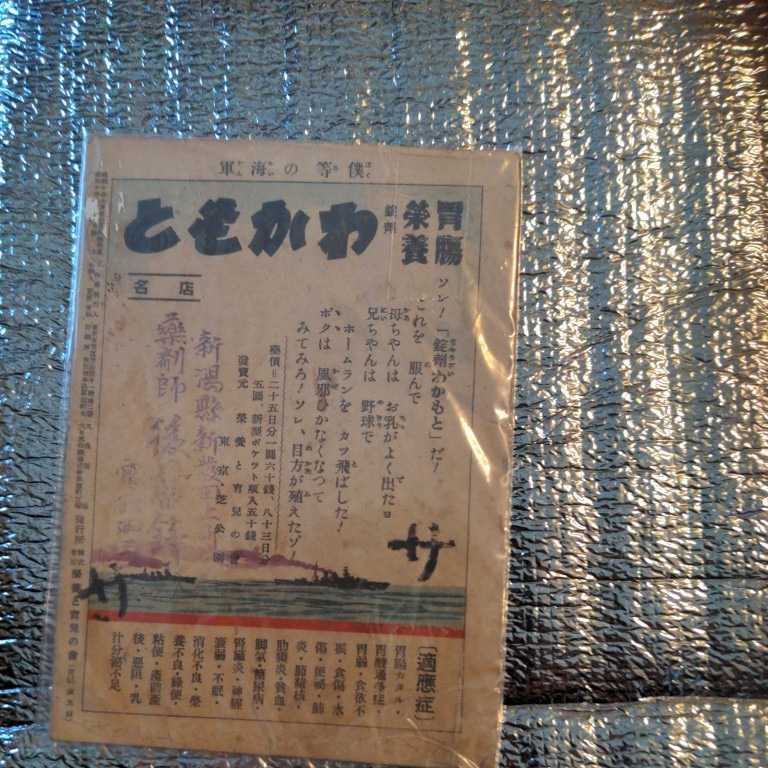 僕等の海軍
胃腸
栄養
錠剤
わかもと
ソレ！「錠剤わかもと」だ！
これを 服んで
母ちやんは お乳がよく出たヨ
兄ちやんは 野球で
ホームランを カツ飛ばした！
ボクは 風邪ひかなくなつて
みてみろ！ソレ、目方が殖えたゾ！
薬價＝二十五日分一圓六十錢、八十三日分
五圓 新型ポケツト瓶入五十錢
發賣元 榮養と育兒の會
東京、芝公園
店名
新潟縣新発田
藥剤師
〔適應症〕
胃腸カタル・
胃酸過多症・
胃弱・食慾不
振・食傷・水
傷・便祕・肺
炎・肺結核・
肋膜炎・貧血
脚氣・糖尿病・
腎臓炎・神經
衰弱・不眠・
消化不良・榮
養不良・綠便・
粘便・產前產
後・惡阻・乳
汁分泌不足
發行所 株式會社 榮養と育兒の會